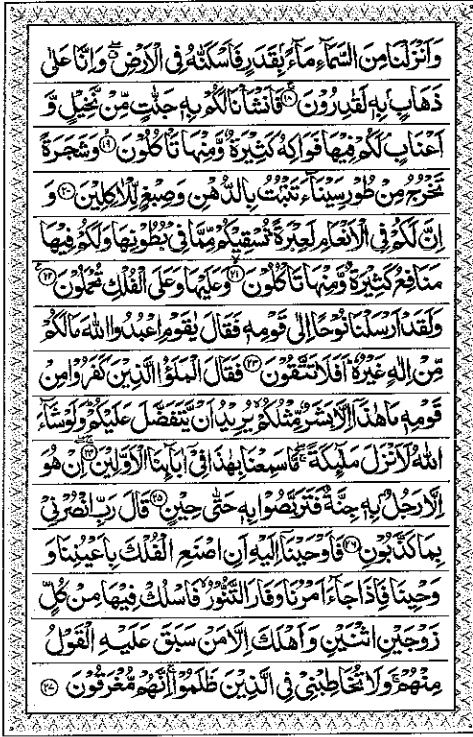 وَاَنۡزَلۡنَا مِنَ السَّمَآءِ مَآءًۢ بِقَدَرٍ فَاَسۡكَنّٰهُ فِى الۡاَرۡضِ‌ۖ وَاِنَّا عَلٰى
ذَهَابٍۢ بِهٖ لَقٰدِرُوۡنَ‌ۚ ۱۸ فَاَنۡشَاۡنَا لَـكُمۡ بِهٖ جَنّٰتٍ مِّنۡ نَّخِيۡلٍ وَّ
اَعۡنَابٍ‌ۘ لَكُمۡ فِيۡهَا فَوَاكِهُ كَثِيۡرَةٌ وَّمِنۡهَا تَاۡكُلُوۡنَۙ ۱۹ وَشَجَرَةً
تَخۡرُجُ مِنۡ طُوۡرِ سَيۡنَآءَ تَنۡۢبُتُ بِالدُّهۡنِ وَصِبۡغٍ لِّلۡاٰكِلِيۡنَ ۲۰ وَ
اِنَّ لَـكُمۡ فِى الۡاَنۡعَامِ لَعِبۡرَةً‌ ؕ نُسۡقِيۡكُمۡ مِّمَّا فِىۡ بُطُوۡنِهَا وَلَـكُمۡ فِيۡهَا
مَنَافِعُ كَثِيۡرَةٌ وَّمِنۡهَا تَاۡكُلُوۡنَۙ ۲۱ وَعَلَيۡهَا وَعَلَى الۡـفُلۡكِ تُحۡمَلُوۡنَ ۲۲
وَلَقَدۡ اَرۡسَلۡنَا نُوۡحًا اِلٰى قَوۡمِهٖ فَقَالَ يٰقَوۡمِ اعۡبُدُوا اللّٰهَ مَا لَـكُمۡ
مِّنۡ اِلٰهٍ غَيۡرُهٗ ؕ اَفَلَا تَتَّقُوۡنَ ۲۳ فَقَالَ الۡمَلَؤُا الَّذِيۡنَ كَفَرُوۡا مِنۡ
قَوۡمِهٖ مَا هٰذَاۤ اِلَّا بَشَرٌ مِّثۡلُكُمۡۙ يُرِيۡدُ اَنۡ يَّـتَفَضَّلَ عَلَيۡكُمۡ ؕ وَلَوۡ شَآءَ
اللّٰهُ لَاَنۡزَلَ مَلٰٓئِكَةً ۖۚ مَّا سَمِعۡنَا بِهٰذَا فِىۡۤ اٰبَآئِنَا الۡاَوَّلِيۡنَ‌ۚ ۲۴ اِنۡ هُوَ
اِلَّا رَجُلٌۢ بِهٖ جِنَّةٌ فَتَرَبَّصُوۡا بِهٖ حَتّٰى حِيۡنٍ ۲۵ قَالَ رَبِّ انْصُرۡنِىۡ
بِمَا كَذَّبُوۡنِ ۲۶ فَاَوۡحَيۡنَاۤ اِلَيۡهِ اَنِ اصۡنَعِ الۡفُلۡكَ بِاَعۡيُنِنَا وَ
وَحۡيِنَا فَاِذَا جَآءَ اَمۡرُنَا وَفَارَ التَّـنُّوۡرُ‌ۙ فَاسۡلُكۡ فِيۡهَا مِنۡ كُلٍّ
زَوۡجَيۡنِ اثۡنَيۡنِ وَاَهۡلَكَ اِلَّا مَنۡ سَبَقَ عَلَيۡهِ الۡقَوۡلُ
مِنۡهُمۡ‌ۚ وَلَا تُخَاطِبۡنِىۡ فِى الَّذِيۡنَ ظَلَمُوۡا‌ۚ اِنَّهُمۡ مُّغۡرَقُوۡنَ ۲۷